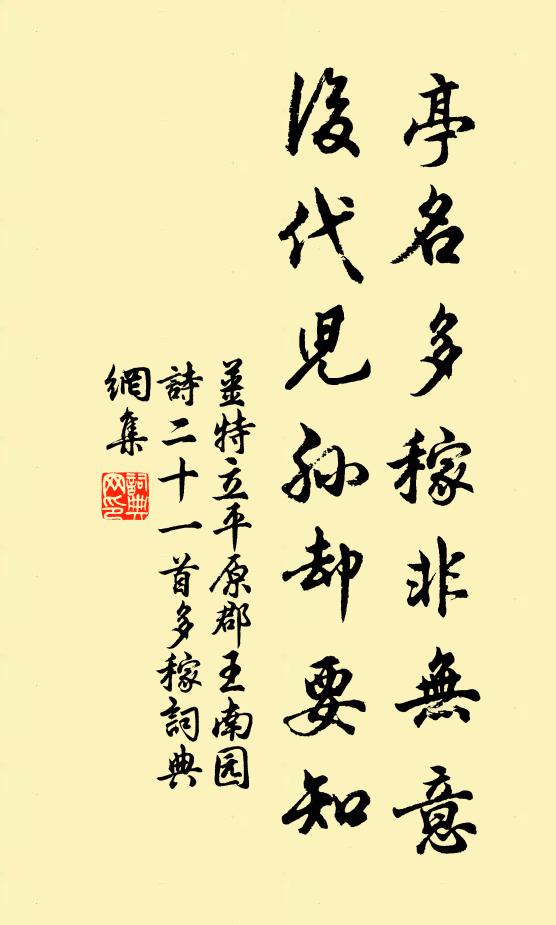 亭名多稼非無意
後代児孫却要知
薑特立平原郡王南园
詩二十一首多稼詞典
網集
詞典
网印